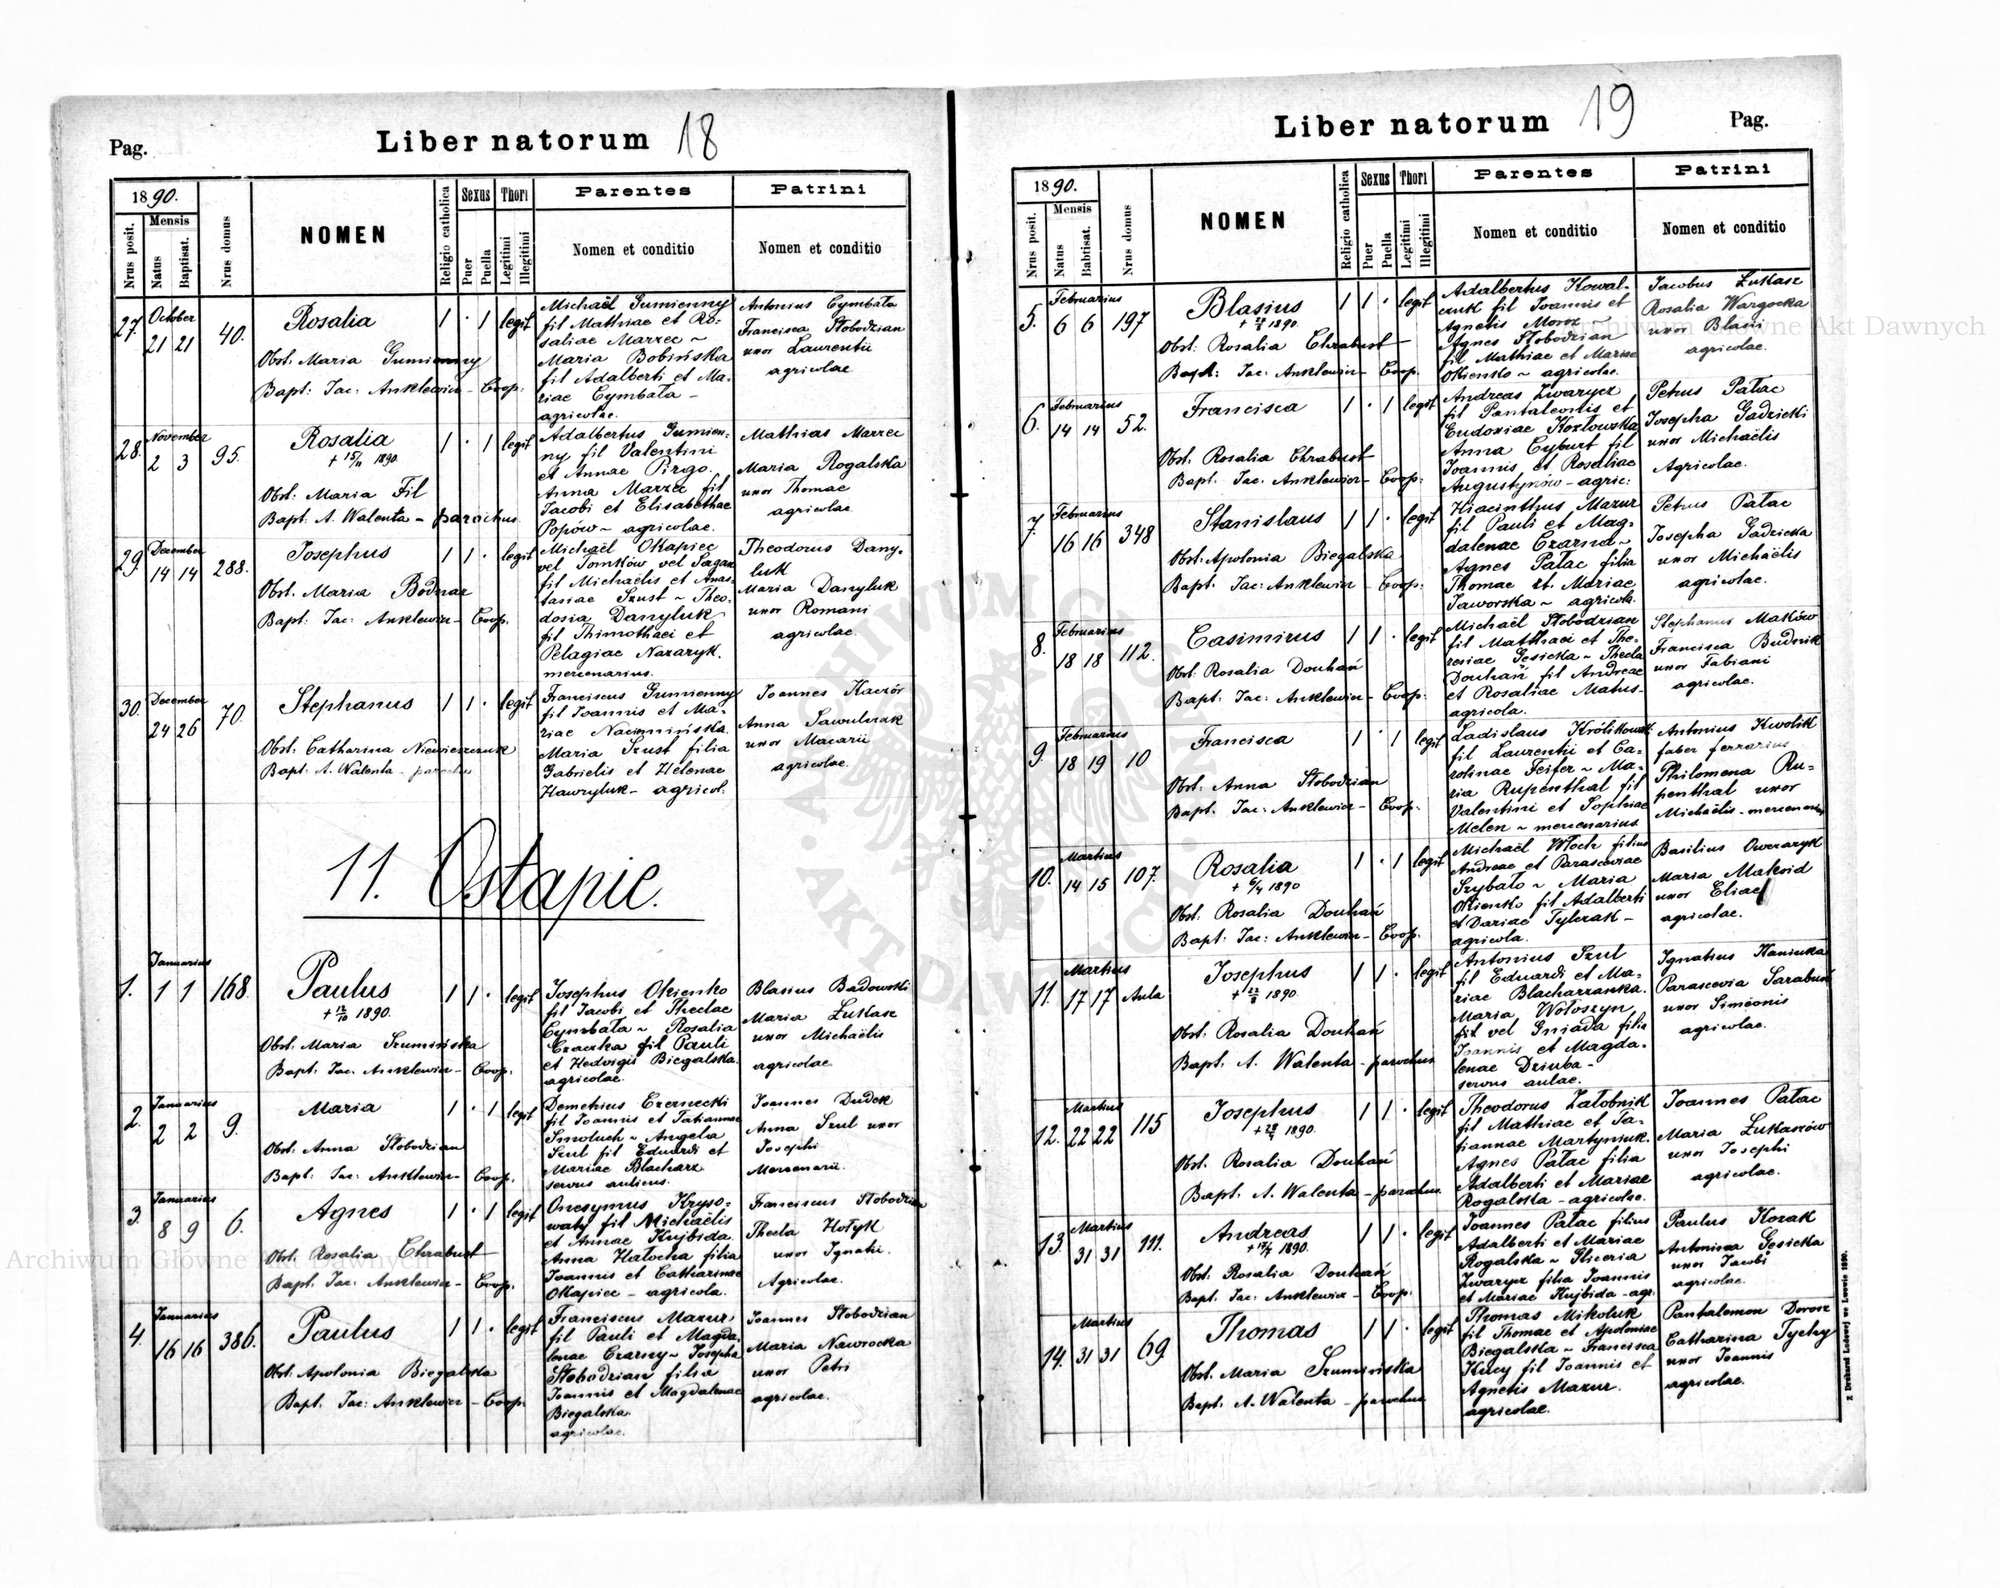 Pag.
Liber natorum 18
1890.
Nrus posit.
Mensis
Natus
Baptisat.
Nrus domus
NOMEN
Religio catholica
Sexus
Puer
Puella
Thori
Legitimi
Illegitimi
Parentes
Nomen et conditio
Patrini
Nomen et conditio
27. October 21 21 40.
Rosalia
Obst. Maria Gumienny
Bapt: Jac: Anklewicz - Coop.
1 · 1 legit
Michaël Gumienny
fil Mathiae et Ro-
saliae Marzec ~
Maria Bobińska
fil Adalberti et Ma-
riae Cymbała -
agricolae.
Antonius Cymbała
Francisca Słobodzian
uxor Laurentii
agricolae
28. November 2 3 95.
Rosalia
+ 15/11 1890.
Obst. Maria Fil
Bapt. A. Walenta - parochus
1 · 1 legit
Adalbertus Gumien-
ny fil Valentini
et Annae Pirgo.
Anna Marzec fil
Jacobi et Elisabethae
Popów ~ agricolae.
Mathias Marzec
Maria Rogalska
uxor Thomae
agricolae.
29 December 14 14 288.
Josephus
Obst. Maria Bodnar
Bapt: Jac: Anklewicz - Coop.
1 1 · legit
Michaël Okapiec
vel Tomków vel Sagan
fil Michaëlis et Anas-
tasiae Szust ~ Theo-
dosia Danyluk
fil Thimothaei et
Pelagiae Nazaryk.
mercenarius.
Theodorus Dany-
luk
Maria Danyluk
uxor Romani
agricolae.
30. December 24 26 70.
Stephanus
Obst. Catharina
Bapt. A. Walenta - parochus
1 1 · legit
Franciscus Gumienny
fil Joannis et Ma-
riae
Maria Szust filia
Gabrielis et Helenae
Hawryluk - agricol.
Joannes Kaczór
Anna Sawulczak
uxor Macarii
agricolae.
11. Ostapie.
1. Januarius 1 1 168.
Paulus
+ 12/10 1890.
Obst. Maria Szumińska
Bapt: Jac. Anklewicz - Coop.
1 1 · legit
Josephus Okienko
fil Jacobi et Theclae
Cymbała ~ Rosalia
Czaczka fil Pauli
et Hedvigis Biegalska.
agricolae.
Blasius Badowski
Maria Łukasz
uxor Michaëlis
agricolae.
2. Januarius 2 2 9.
Maria
Obst. Anna Słobodzian
Bapt: Jac: Anklewicz - Coop.
1 · 1 legit
Demetrius Czernecki
fil Joannis et Tatiannae
Smoluch ~ Angela
Szul fil Eduardi et
Mariae Blacharz
servus aulicus.
Joannes Dudek
Anna Szul uxor
Josephi
Mercenarii.
3. Januarius 8 9 6.
Agnes
Obst. Rosalia Chrabust
Bapt: Jac: Anklewicz - Coop.
1 · 1 legit
Onesymus Kryso-
waty fil Michaëlis
et Annae Kujbida.
Anna Hałocha filia
Joannis et Catharinae
Okapiec - agricola.
Franciscus Słobodzian
Thecla Hołyk
uxor Ignatii.
Agricolae.
4. Januarius 16 16 386.
Paulus
Obst. Apolonia Biegalska
Bapt. Jac: Anklewicz - Coop.
1 1 · legit
Franciscus Mazur
fil Pauli et Magda-
lenae Czarny ~ Josepha
Słobodzian filia
Joannis et Magdalenae
Biegalska.
agricolae.
Joannes Słobodzian
Maria Nawrocka
uxor Petri
agricolae.
Liber natorum 19
Pag.
1890.
Nrus posit.
Mensis
Natus
Babtisat.
Nrus domus
NOMEN
Religio catholica
Sexus
Puer
Puella
Thori
Legitimi
Illegitimi
Parentes
Nomen et conditio
Patrini
Nomen et conditio
5. Februarius 6 6 197
Blasius
1890.
Obst. Rosalia Chrabust
Bapt: Jac: Anklewicz - Coop.
1 1 · legit
Adalbertus Kowal-
czuk fil Joannis et
Agnetis Moroz ~
Agnes Słobodzian
fil Mathiae et Mariae
Okienko ~ agricolae.
Jacobus Łukasz
Rosalia Wargocka
uxor Blasii
agricolae.
6. Februarius 14 14 52.
Francisca
Obst. Rosalia Chrabust
Bapt. Jac. Anklewicz - Coop:
1 · 1 legit
Andreas Zwarycz
fil Pantaleonis et
Eudoxiae Kozłowska
Anna Cyburt fil
Joannis et Rosaliae
Augustynów - agric:
Petrus Pałac
Josepha Gadzicki
uxor Michaëlis
Agricolae.
7. Februarius 16 16 348
Stanislaus
Obst. Apolonia Biegalska
Bapt: Jac: Anklewicz - Coop:
1 1 · legit
Hiacinthus Mazur
fil Pauli et Mag-
dalenae Czarna ~
Agnes Pałac filia
Thomae et Mariae
Jaworska ~ agricola.
Petrus Pałac
Josepha Gadzicka
uxor Michaëlis
agricolae.
8. Februarius 18 18 112.
Casimirus
Obst. Rosalia Douhań
Bapt: Jac: Anklewicz - Coop:
1 1 · legit
Michaël Słobodzian
fil Matthaei et The-
resiae Gęsicka ~ Thecla
Douhań fil Andreae
et Rosaliae Matus-
agricola.
Stephanus Maków
Francisca Budnik
uxor Fabiani
agricolae.
9. Februarius 18 19 10
Francisca
Obst. Anna Słobodzian
Bapt: Jac: Anklewicz - Coop.
1 · 1 legit
Ladislaus Królikowski
fil Laurentii et Ca-
rolinae Feifer ~ Ma-
ria Rupenthal fil
Valentini et Sophiae
Melen ~ mercenarius
Antonius Kwolik
faber ferrarius
Philomena Ru-
penthal uxor
Michaëlis - mercenarius
10. Martius 14 15 107.
Rosalia
+ 6/4 1890
Obst. Rosalia Douhań
Bapt: Jac: Anklewicz - Coop.
1 · 1 legit
Michaël Włoch filius
Andreae et Parasceviae
Szybało ~ Maria
Okienko fil Adalberti
et Dariae Tylczak -
agricola.
Basilius Owczaryk
Maria Makoid
uxor Eliae
agricolae.
11. Martius 17 17 Aula
Josephus
1890.
Obst. Rosalia Douhań
Bapt. A. Walenta - parochus
1 1 · legit
Antonius Szul
fil Eduardi et Ma-
riae Blacharzanka.
Maria Wołoszyn
fil vel Śniada filia
Joannis et Magda-
lenae Dziuba -
servus aulae.
Ignatius Haniuka
Parascevia Sarabun
uxor Simeonis
agricolae.
12. Martius 22 22 115
Josephus
1890.
Obst. Rosalia Douhań
Bapt. A. Walenta - parochus
1 1 · legit
Theodorus Załobnik
fil Mathiae et Ta-
tiannae Martyniuk.
Agnes Pałac filia
Adalberti et Mariae
Rogalska - agricolae.
Joannes Pałac
Maria Łukaszów
uxor Josephi
agricolae.
13. Martius 31 31 111.
Andreas
1890.
Obst. Rosalia Douhań
Bapt. Jac: Anklewicz - Coop:
1 1 · legit
Joannes Pałac filius
Adalberti et Mariae
Rogalska ~ Gliceria
Zwarycz filia Joannis
et Mariae Kujbida - agr.
Paulus Kozak
Antonina Gęsicka
uxor Jacobi
agricolae.
14. Martius 31 31 69.
Thomas
Obst. Maria Szumińska
Bapt. A. Walenta - parochus
1 1 · legit
Thomas Mikoluk
fil Thomae et Apoloniae
Biegalska ~ Francisca
Kucy fil Joannis et
Agnetis Mazur.
agricolae.
Pantalemon Dorosz
Catharina Tychy
uxor Joannis
agricolae.
Z Drukarni Ludowej we Lwowie 1890.
Archiwum Główne Akt Dawnych
Archiwum Główne Akt Dawnych
ARCHIWUM GŁÓWNE AKT DAWNYCH